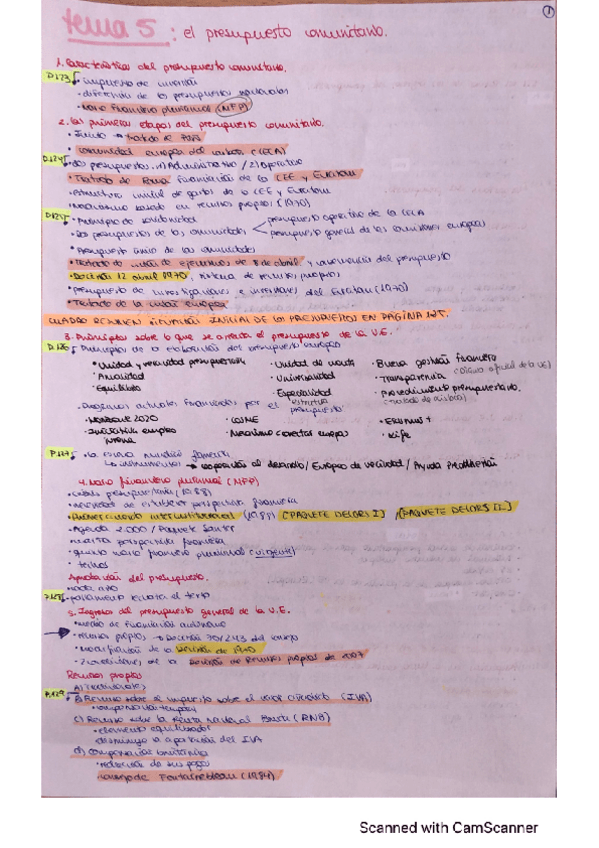 1
tema 5: el presupuesto comunitario.
1. Características del presupuesto comunitario.
P.123
• impuesto de inversión
• diferencia de los presupuestos nacionales
• marco financiero plurianual (MFP)
2. Las primeras etapas del presupuesto comunitario.
• Inicio → tratado de París
• Comunidad europea del carbón (CECA)
P.124
• dos presupuestos: 1) Administrativo / 2) operativo
• Tratado de Roma financiación de la CEE y Euratom
• estructura inicial de gastos de la CEE y Euratom
• mecanismo basado en recursos propios (1970)
P.125
• principio de solidaridad
• Dos presupuestos de las comunidades
presupuesto operativo de la CECA
presupuesto general de las comunidades europeas
• Presupuesto único de las comunidades
• Tratado de fusión de ejecutivos de 8 de abril y del presupuesto
• Decisión 21 abril 1970, sistema de recursos propios
• presupuesto de investigaciones e inversiones del Euratom (1970)
• Tratado de la unión europea
CUADRO RESUMEN SITUACIÓN INICIAL DE LOS PRESUPUESTOS EN PÁGINA 125.
3. Principios sobre lo que se asienta el presupuesto de la U.E.
P.126
• Principios de la elaboración del presupuesto europeo
• Unidad y veracidad presupuestaria
• Anualidad
• Equilibrio
• Unidad de cuenta
• Universalidad
• Especialidad
• Buena gestión financiera
• Transparencia (diario oficial de la UE)
• procedimiento presupuestario.
(tratado de Lisboa)
• Programas actuales financiados por el
presupuesto
• Horizonte 2020
• Iniciativa empleo
• COSME
• Mecanismo conectar europa
• Erasmus +
• Life
P.127
• La
↳ instrumentos → cooperación al desarrollo / Europeo de vecindad / Ayuda
4. Marco financiero plurianual (MFP)
• crisis presupuestaria (1988)
• necesidad de establecer perspectiva financiera
• Primer acuerdo interinstitucional (1988) [PAQUETE DELORS I] / [PAQUETE DELORS II]
• Agenda 2.000 / Paquete Santer
• cuarta perspectiva financiera
• quinto marco financiero plurianual (vigente)
• techos
Aprobación del presupuesto.
• cada año
P.128
• parlamento el texto
5. Ingresos del presupuesto general de la U.E.
• medio de financiación autónomo
→ • recursos propios → Decisión 70/243 del consejo
• modificación de la Decisión de 1970
• de la Decisión de Recursos propios de 2007
Recursos propios
a) tradicionales
P.129
b) Recurso sobre el impuesto sobre el valor añadido (IVA)
c) Recurso sobre la Renta Nacional Bruta (RNB)
• elemento equilibrador
disminuye la aportación del IVA
d) compensación británica
• reducción de sus pagos
• consejo de Fontainebleau (1984)
Scanned with CamScanner